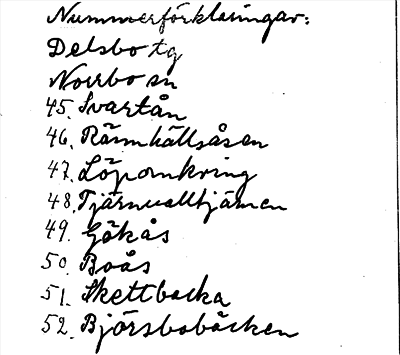 Nummerförklaringar:
Delsbo tg
Norrbo sn
45. Svartån
46. Rännhällsåsen
47. Löpomkring
48. Tjärnvalltjärnen
49. Gökås
50. Boås
51. Skettbacka
52. Bjórsbobäcken